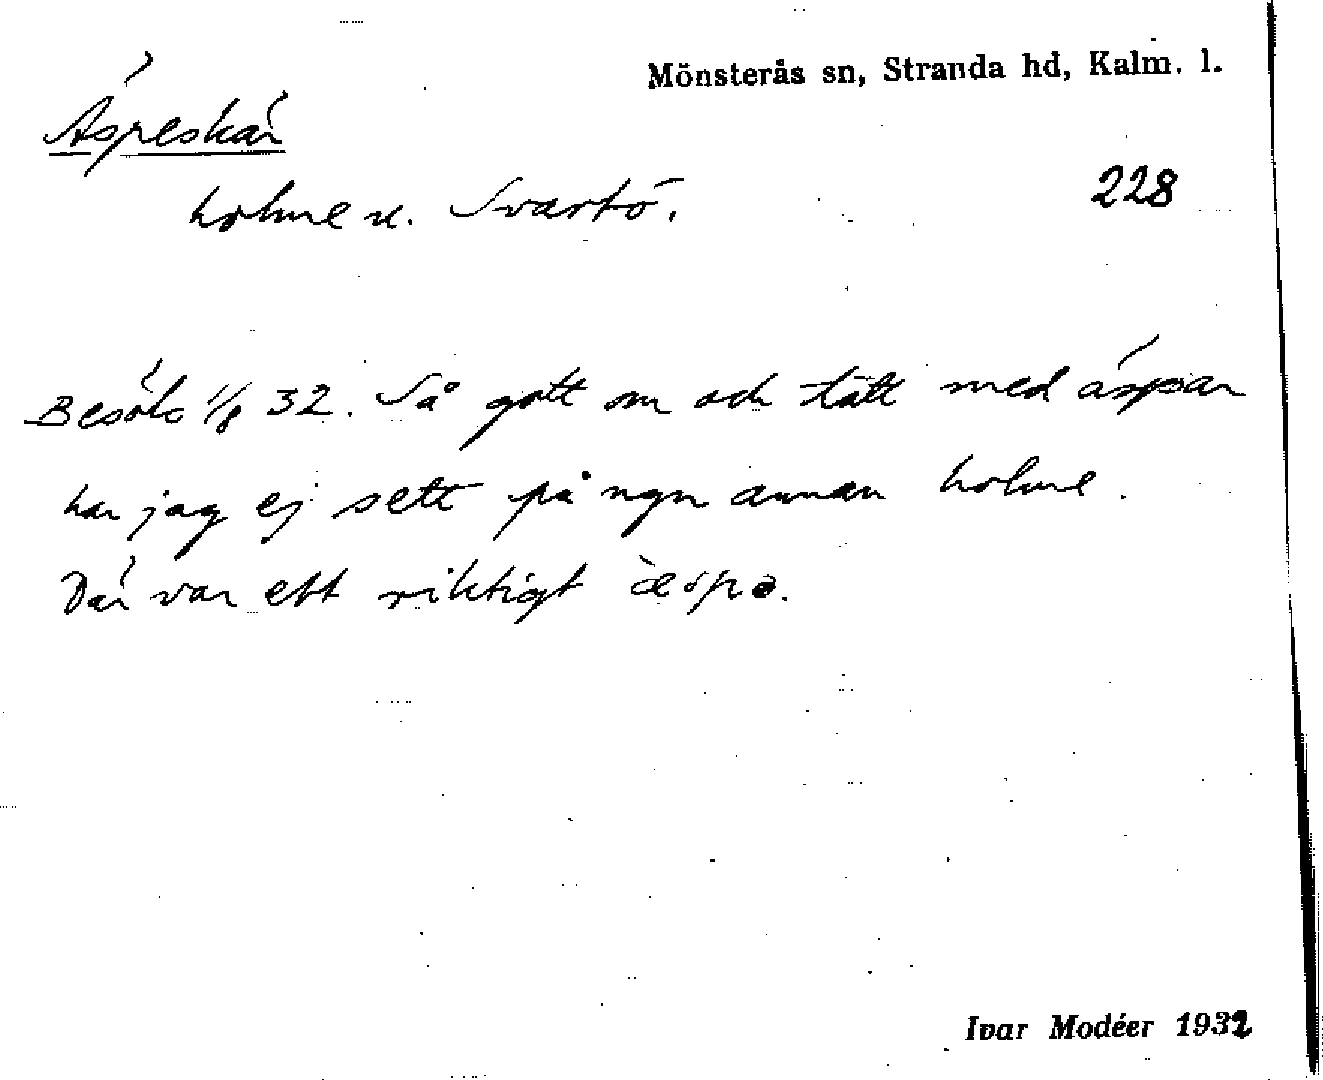 Mönsterås sn, Stranda hd, Kalm. l.
Äspeskär
228
holme n. Svartö.
Besök 1/8 32. Så gott om och tätt med äspar
har jag ej sett på ngn annan holme.
Där var ett riktigt
Ivar Modéer 1932